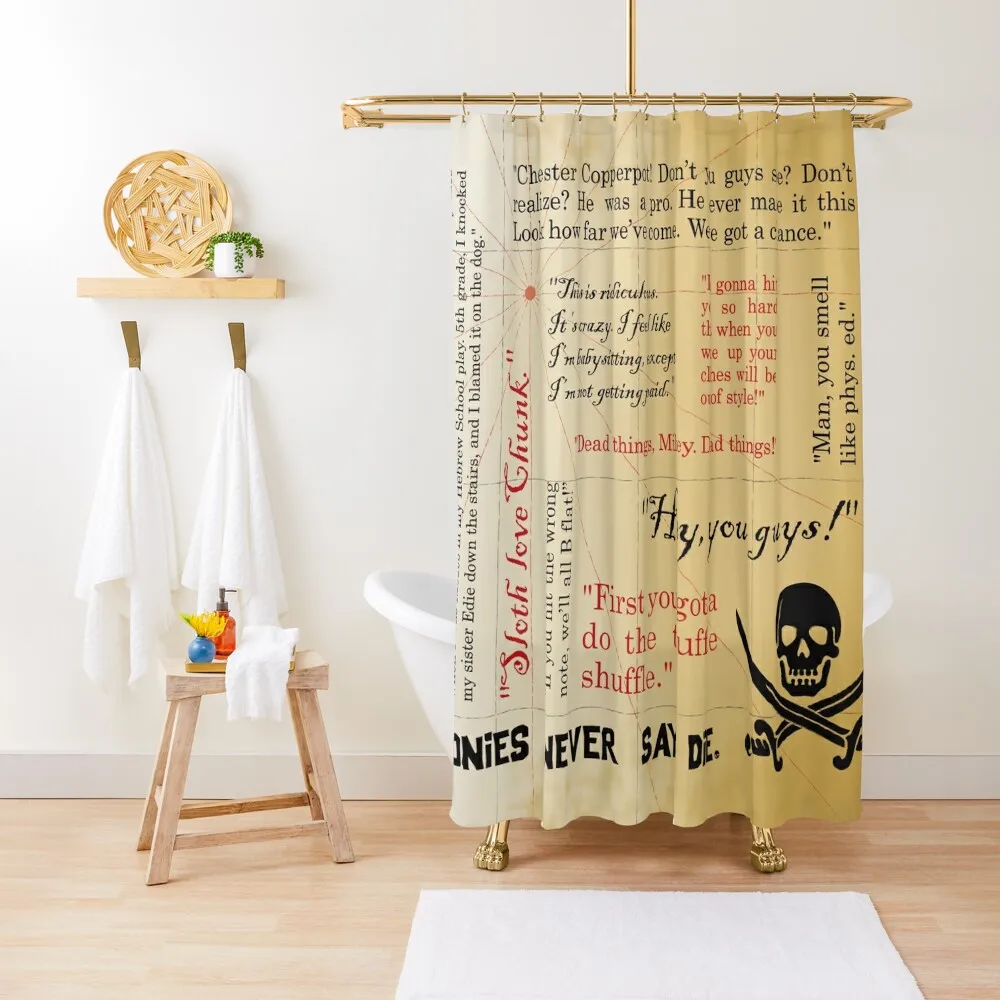 "Chester Copperpot! Don't you guys se? Don't
realize? He was a pro. He ever mae it this
Look how far we've come. We've got a cance."
my sister Edie down the stairs, and I blamed it on the dog."
in my Hebrew School play. 5th grade, I knocked
"Sloth love Chunk."
"This is ridiculous.
It's crazy. I feel like
I'm babysitting, except
I'm not getting paid."
"I gonna hit
so hard
when you
we up your
will be
of style!"
"Man, you smell
like phys. ed."
"Dead things, Mikey. Dad things!"
"Hy, you guys!"
If you hit the wrong
note, we'll all B flat!"
"First you gota
do the tuffle
shuffle."
ONIES NEVER SAY DIE.